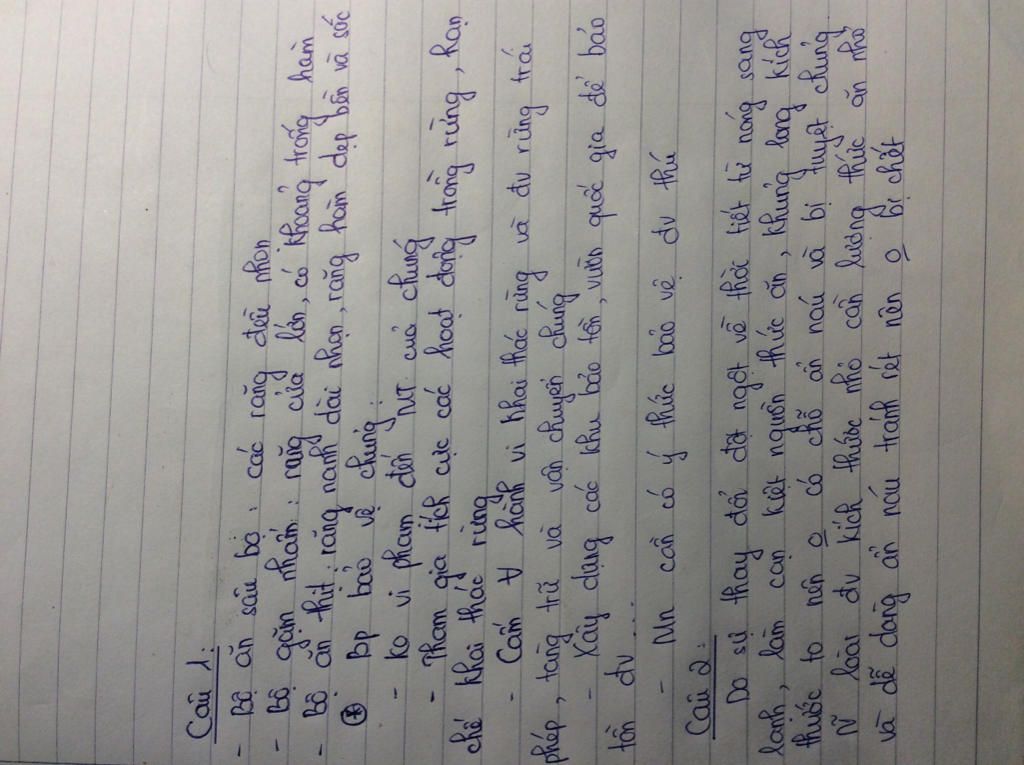 Câu 1:
- Bộ ăn sâu bọ : các răng đều nhọn
- Bộ gặm nhấm : răng cửa lớn, có khoảng trống hàm
- Bộ ăn thịt : răng nanh dài nhọn, răng hàm dẹp bên và sắc
* BP bảo vệ chúng :
- Ko vi phạm đến MT của chúng
- Tham gia tích cực các hoạt động trồng rừng, hạn
chế khai thác rừng
- Cấm ∀ hành vi khai thác rừng và đv rừng trái
phép, tàng trữ và vận chuyển chúng
- Xây dựng các khu bảo tồn, vườn quốc gia để bảo
tồn đv ...
- Mn cần có ý thức bảo vệ đv thú
Câu 2 :
Do sự thay đổi đột ngột về thời tiết từ nóng sang
lạnh, làm cạn kiệt nguồn thức ăn, khủng long kích
thước to nên o có chỗ ẩn náu và bị tuyệt chủng
N~ loài đv kích thước nhỏ cần lượng thức ăn nhỏ
và dễ dàng ẩn náu tránh rét nên o bị chết